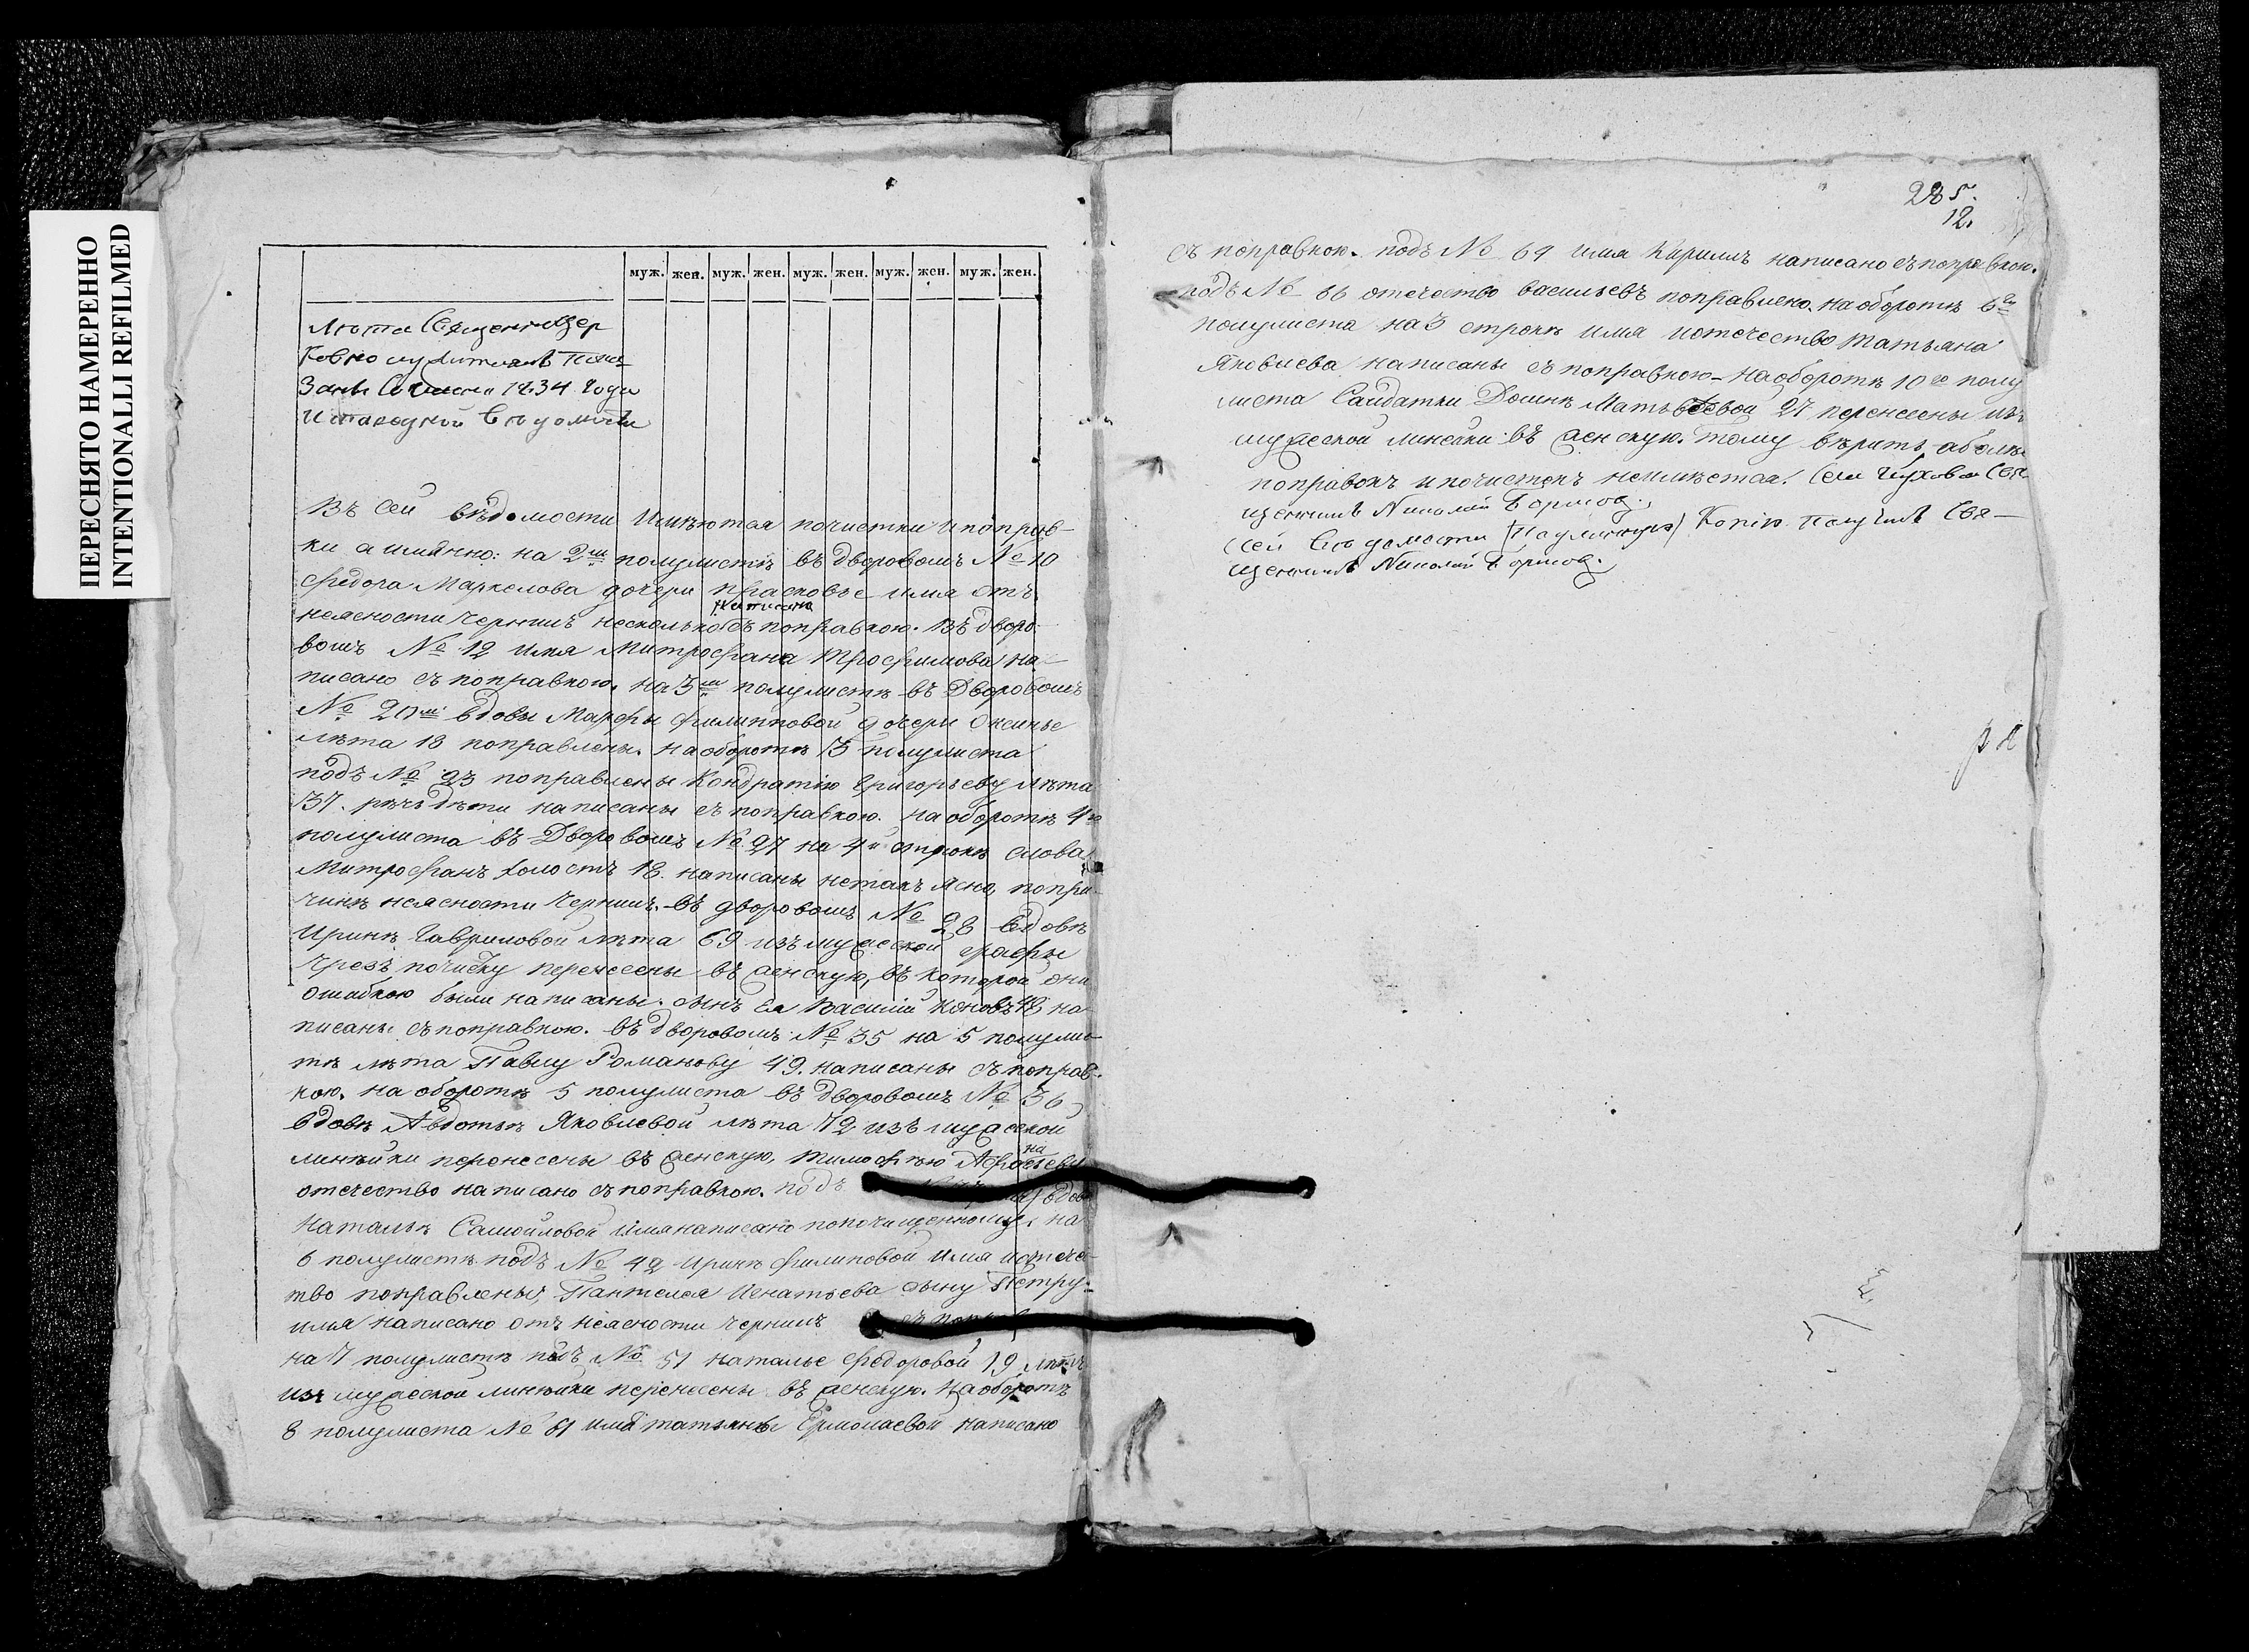 ПЕРЕСНЯТО НАМЕРЕННО
INTENTIONALLI REFILMED
муж. жен. муж. жен. муж. жен. муж. жен. муж. жен.
Лѣта Священноцер
ковно служителей пока
заны 1834 Года
Въ сей вѣдомости имѣются почистки и поправ-
ки а имянно: на 2мъ полулистѣ въ дворовомъ № 10
Федота Маркелова дочери Прасковье имя отъ
написано
неясности чернилъ несколько съ поправкою. Въ дворо-
вомъ № 12 имя Митрофана Трофимова на-
писано съ поправкою. на 3мъ полулистѣ въ Дворовомъ
№ 20мъ вдовы Марфы Филипповой дочери Оксинье
лѣта 18 поправлены. на оборотѣ 3 полулиста
подъ № 23 поправлены Кондратію Григорьеву лѣта
37. рѣчь дѣти написаны съ поправкою. на оборотѣ 4го
полулиста въ Дворовомъ № 27 на 4й строкѣ слова
Митрофанъ холостъ 18. написаны не такъ ясно, попри-
чинѣ неясности чернилъ. въ дворовомъ № 28 вдовѣ
Иринѣ Гавриловой лѣта 69 изъ мужеской графы
чрезъ почистку перенесены въ женскую, въ которой они
ошибкою были написаны. сынъ Ея Василій Коновъ 48 на-
писаны съ поправкою. въ дворовомъ № 35 на 5 полулис-
тѣ лѣта Павлу Романову 49. написаны съ поправ-
кою. на оборотѣ 5 полулиста въ дворовомъ № 36
вдовѣ Авдотьѣ Яковлевой лѣта 72 изъ мужеской
линѣйки перенесены въ женскую, Тимофѣю
на
отечество написано съ поправкою. подъ вдов
Натальѣ Самойловой имя написано попочищенному. на
6 полулистѣ подъ № 42 Иринѣ Филиповой имя и отече-
тво поправлены, Пантелея Игнатьева сыну Петру-
имя написано отъ неясности чернилъ съ
на 7 полулистѣ подъ № 51 Наталье Федоровой 19 лѣтъ
изъ мужеской линѣйки перенесены въ женскую. на оборотѣ
8 полулиста № 61 имя Татьяны Ермолаевой написано
285.
12.
съ поправкою. подъ № 64 имя Кирилъ написано съ поправкою.
подъ № 66 отечество Васильевъ поправлено. на оборотѣ 6го
полулиста на 3 строкѣ имя и отечество Татьяна
Яковлева написаны съ поправкою - на оборотѣ 10го полу
листа Салдатки Домнѣ Матвѣевой 27 перенесены изъ
мужеской линейки въ женскую. тому вѣрить, а болѣе
поправокъ и почистокъ неимѣется. Села Глухова Свя-
щенникъ Николай
Сей вѣдомости (Подлинную) Копію получилъ Свя-
щенникъ Николай